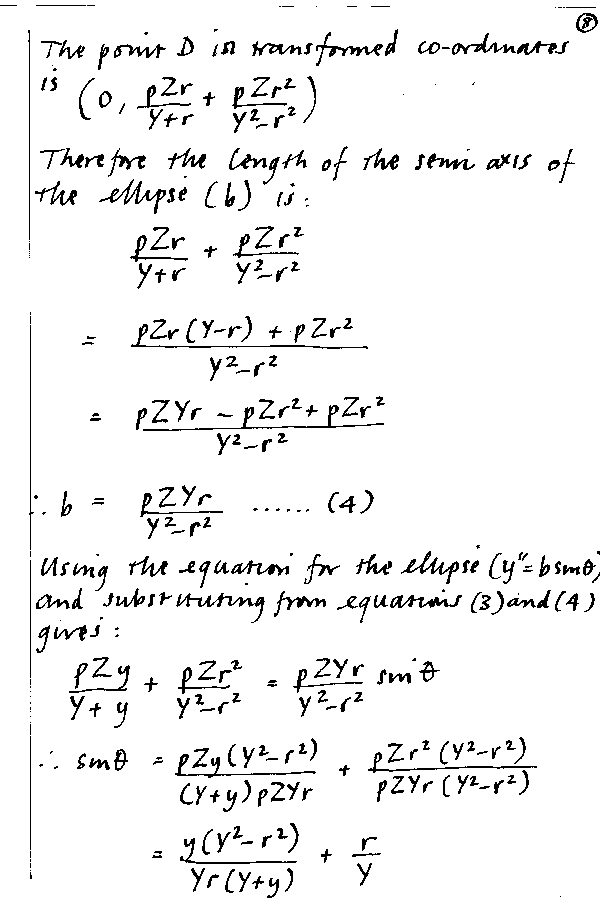 (8)
The point D in transformed co-ordinates
is (0, pZr/(Y+r) + pZr²/(Y²-r²))
Therefore the length of the semi axis of
the ellipse (b) is:
pZr/(Y+r) + pZr²/(Y²-r²)
= (pZr(Y-r) + pZr²)/(Y²-r²)
= (pZYr - pZr² + pZr²)/(Y²-r²)
∴ b = pZYr/(Y²-r²) ...... (4)
Using the equation for the ellipse (y"=bsinθ)
and substituting from equations (3) and (4)
gives:
pZy/(Y+y) + pZr²/(Y²-r²) = pZYr/(Y²-r²) sinθ
∴ sinθ = pZy(Y²-r²)/((Y+y)pZYr) + pZr²(Y²-r²)/(pZYr(Y²-r²))
= y(Y²-r²)/(Yr(Y+y)) + r/Y